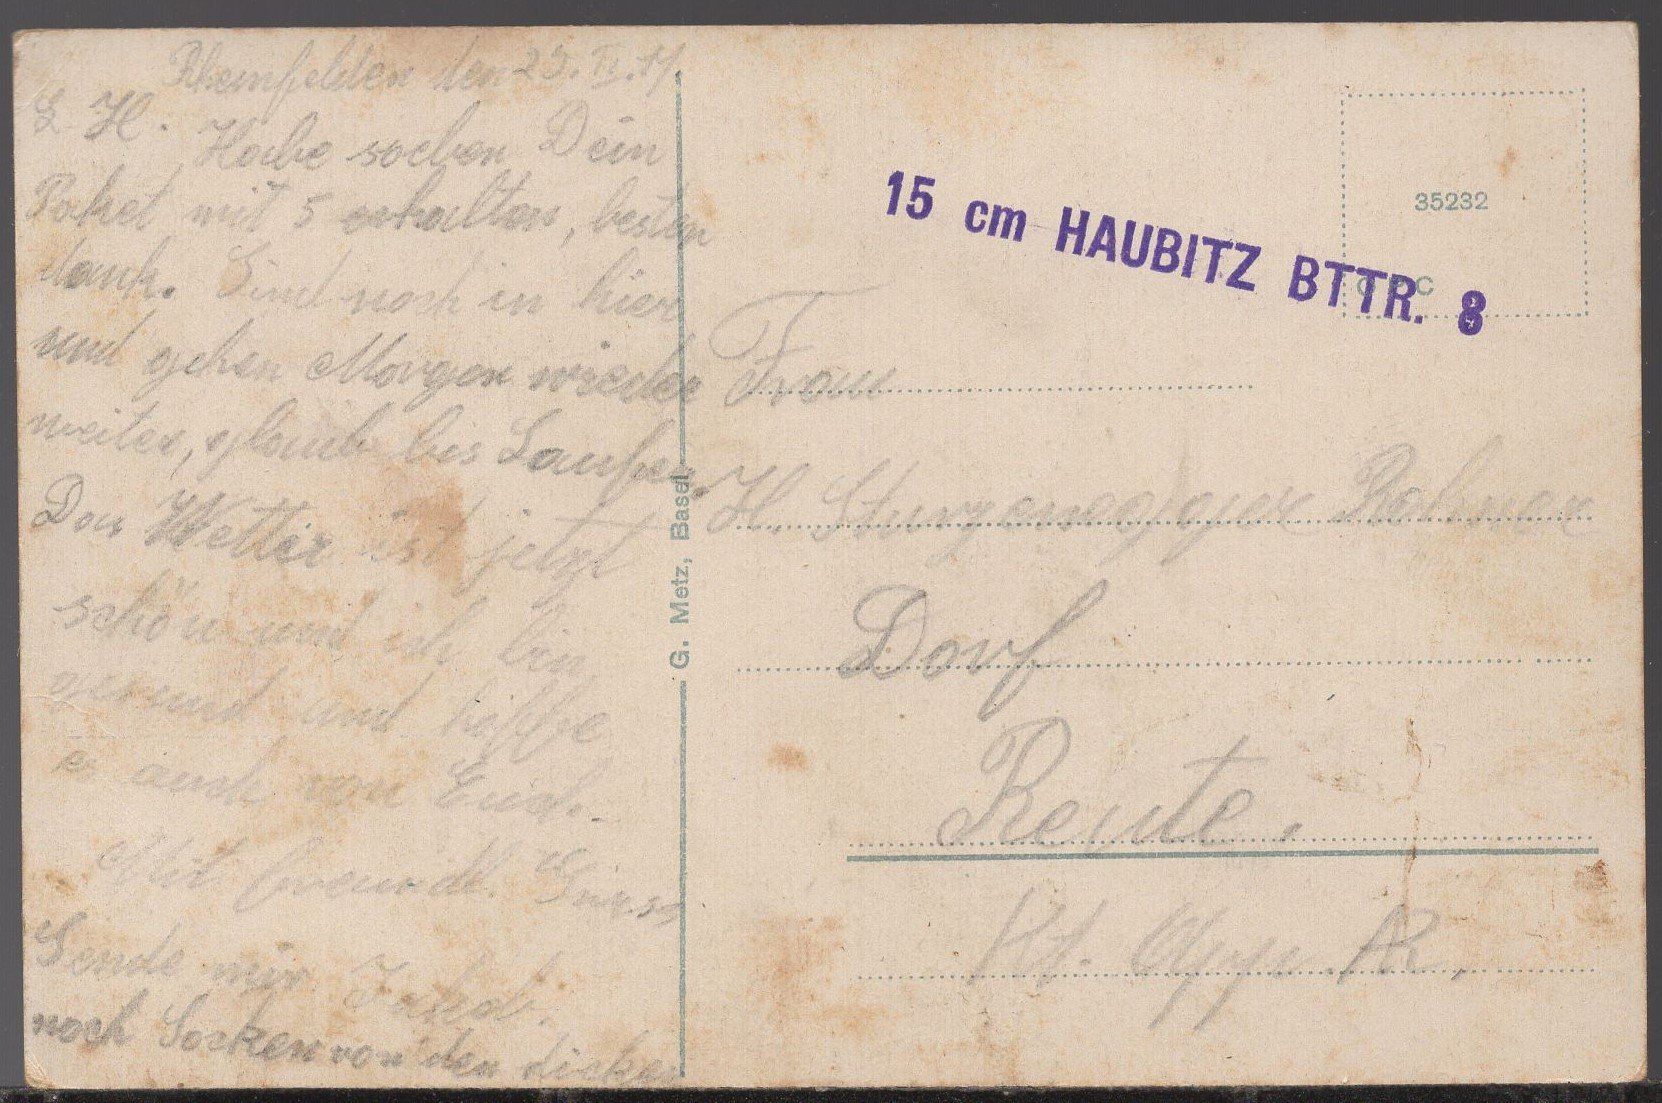 Rheinfelden den 25. II. 17.
L H. Habe soeben Dein
Paket mit 5 erhalten, besten
dank. Sind noch in hier
und gehen Morgen wieder
weiter, glaub bis Laufen.
Das Wetter ist jetzt
schön und ich bin
gesund und hoffe
es auch von Euch.
Mit freundl. Gruss
Jakob.
Sende mir
noch Socken von den dicken
G. Metz, Basel
15 cm HAUBITZ BTTR. 8
35232
C
Frau
H. Sturzenegger
Dorf
Reute.
Kt. App. AR.